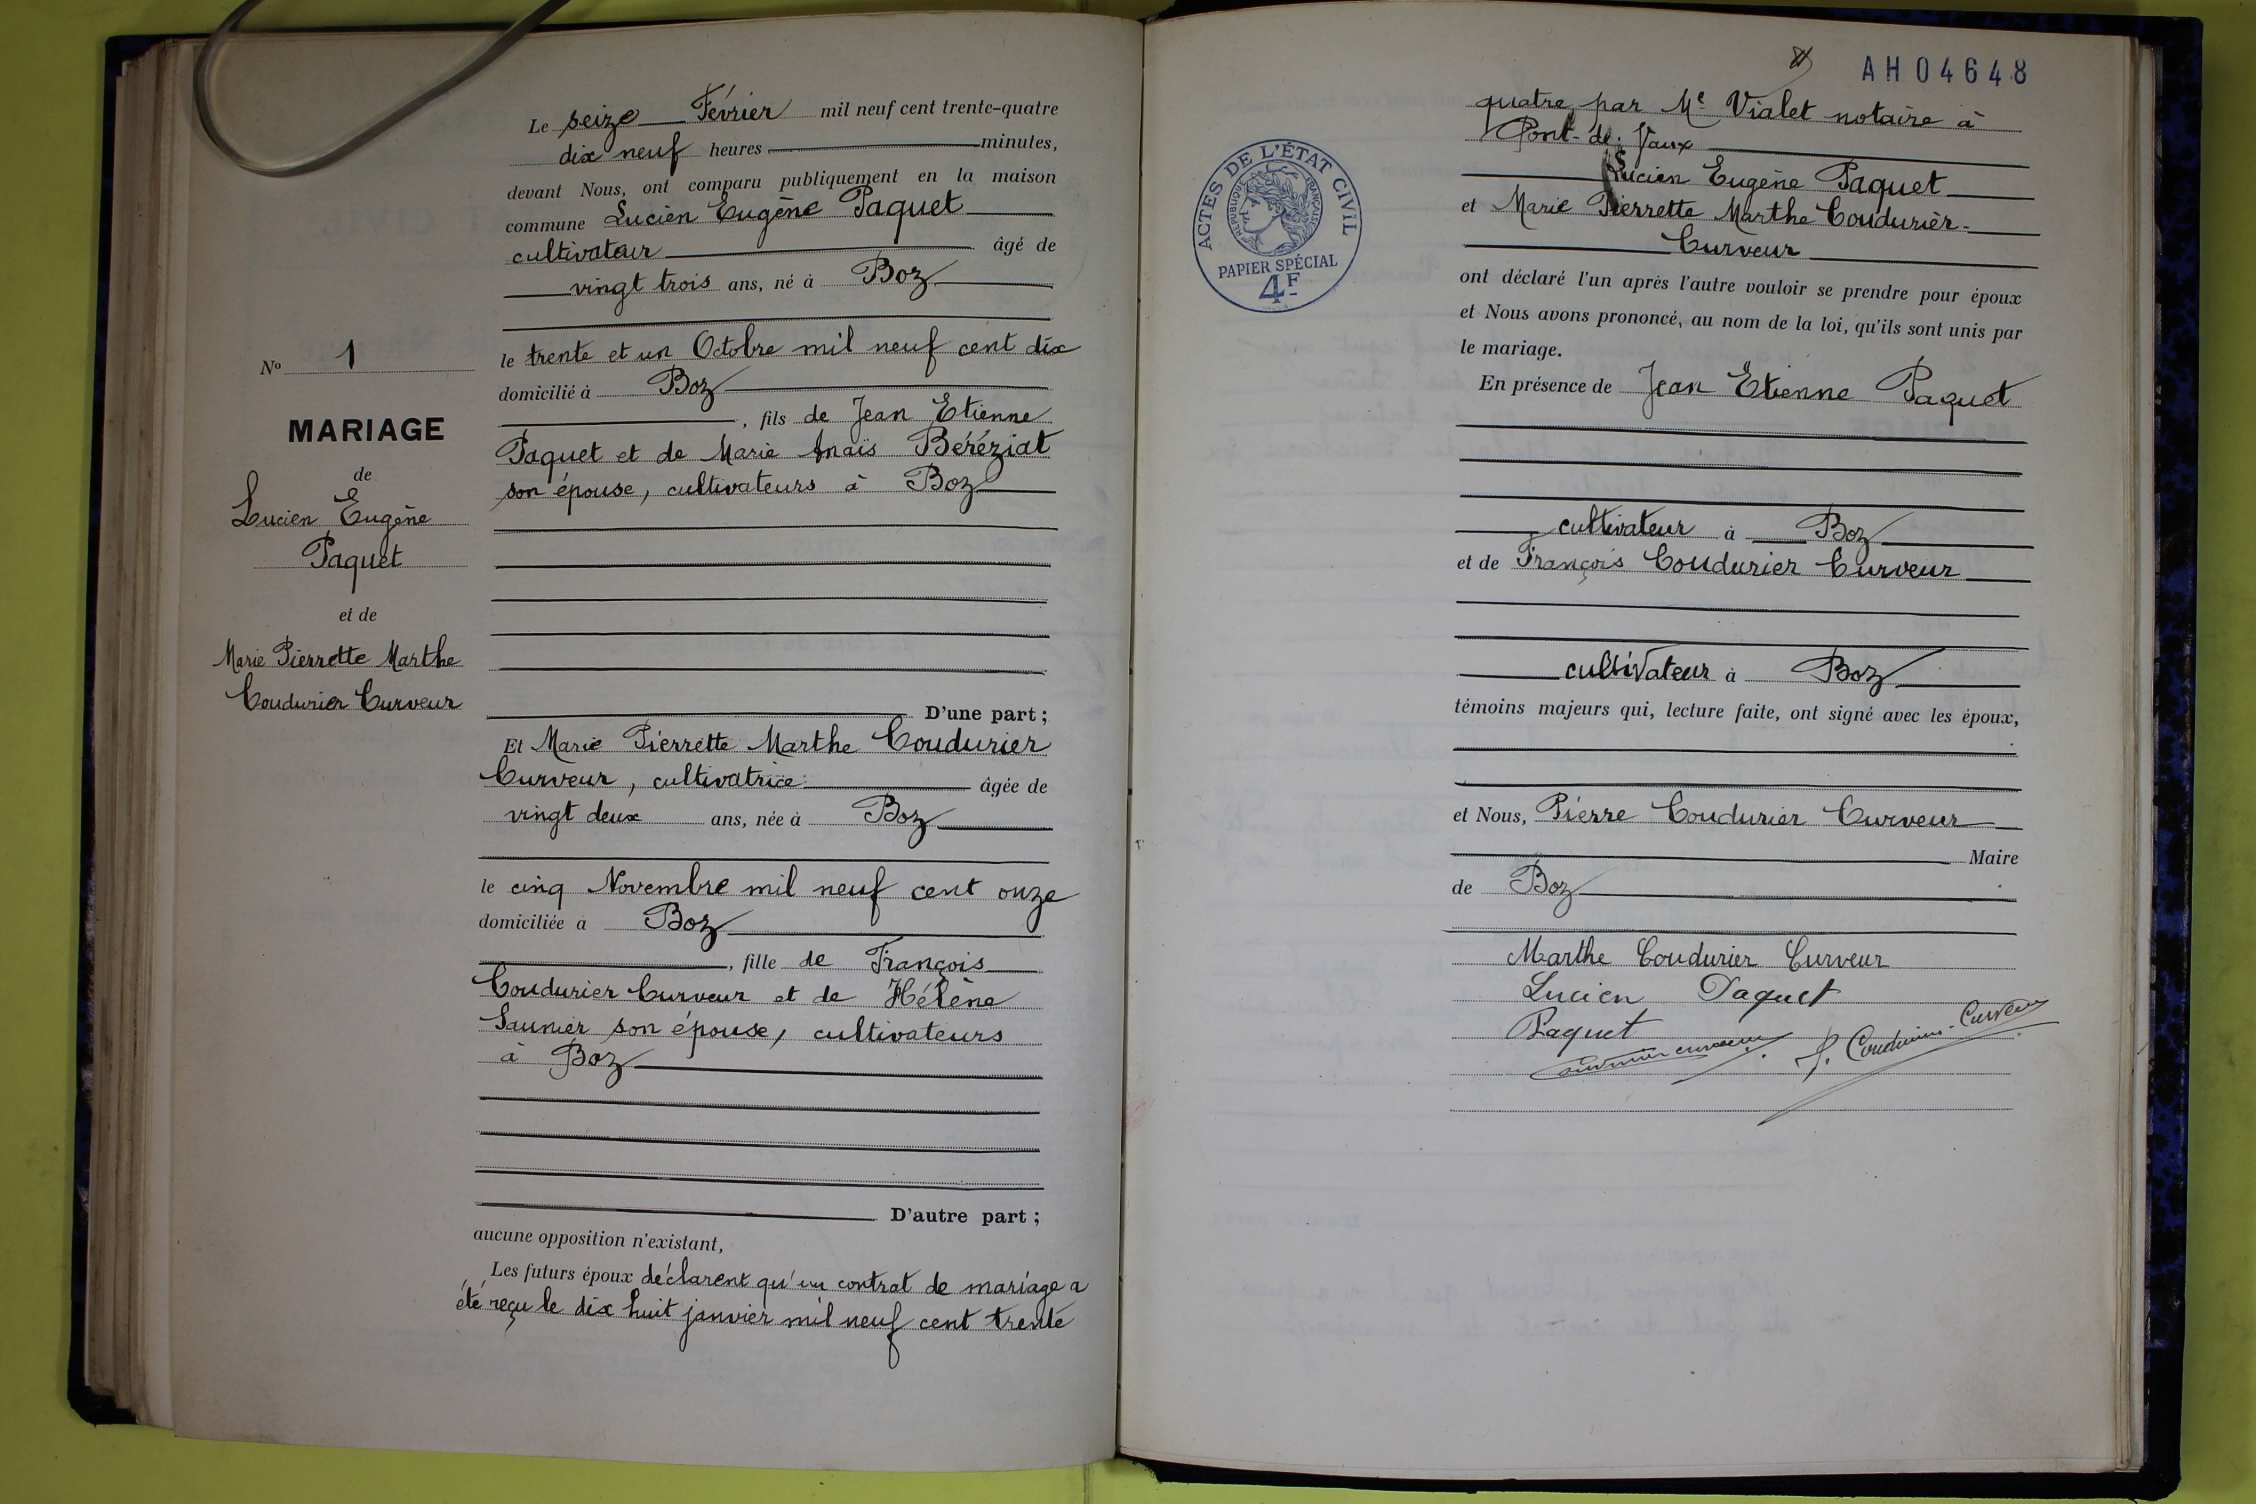 Le seize Février mil neuf cent trente-quatre
dix neuf heures minutes,
devant Nous, ont comparu publiquement en la maison
commune Lucien Eugène Paquet
cultivateur âgé de
vingt trois ans, né à Boz
le trente et un Octobre mil neuf cent dix
domicilié à Boz
, fils de Jean Etienne
Paquet et de Marie Anaïs Béréziat
son épouse, cultivateurs à Boz
D'une part ;
Nº 1
MARIAGE
de
Lucien Eugène
Paquet
et de
Marie Pierrette Marthe
Coudurier Curveur
Et Marie Pierrette Marthe Coudurier
Curveur, cultivatrice âgée de
vingt deux ans, née à Boz
le cinq Novembre mil neuf cent onze
domiciliée à Boz
, fille de François
Coudurier Curveur et de Hélène
Saunier son épouse, cultivateurs
à Boz
D'autre part ;
aucune opposition n'existant,
Les futurs époux déclarent qu'un contrat de mariage a
été reçu le dix huit janvier mil neuf cent trente
AH04648
ACTES DE L'ÉTAT CIVIL
REPUBLIQUE FRANÇAISE
PAPIER SPÉCIAL
4F
quatre par Me Vialet notaire à
Pont-de-Vaux
Lucien Eugène Paquet
et Marie Pierrette Marthe Coudurier-
Curveur
ont déclaré l'un après l'autre vouloir se prendre pour époux
et Nous avons prononcé, au nom de la loi, qu'ils sont unis par
le mariage.
En présence de Jean Etienne Paquet
cultivateur à Boz
et de François Coudurier Curveur
cultivateur à Boz
témoins majeurs qui, lecture faite, ont signé avec les époux,
et Nous, Pierre Coudurier Curveur
Maire
de Boz
Marthe Coudurier Curveur
Lucien Paquet
Paquet
Coudurier curveur P. Coudurier-Curveur